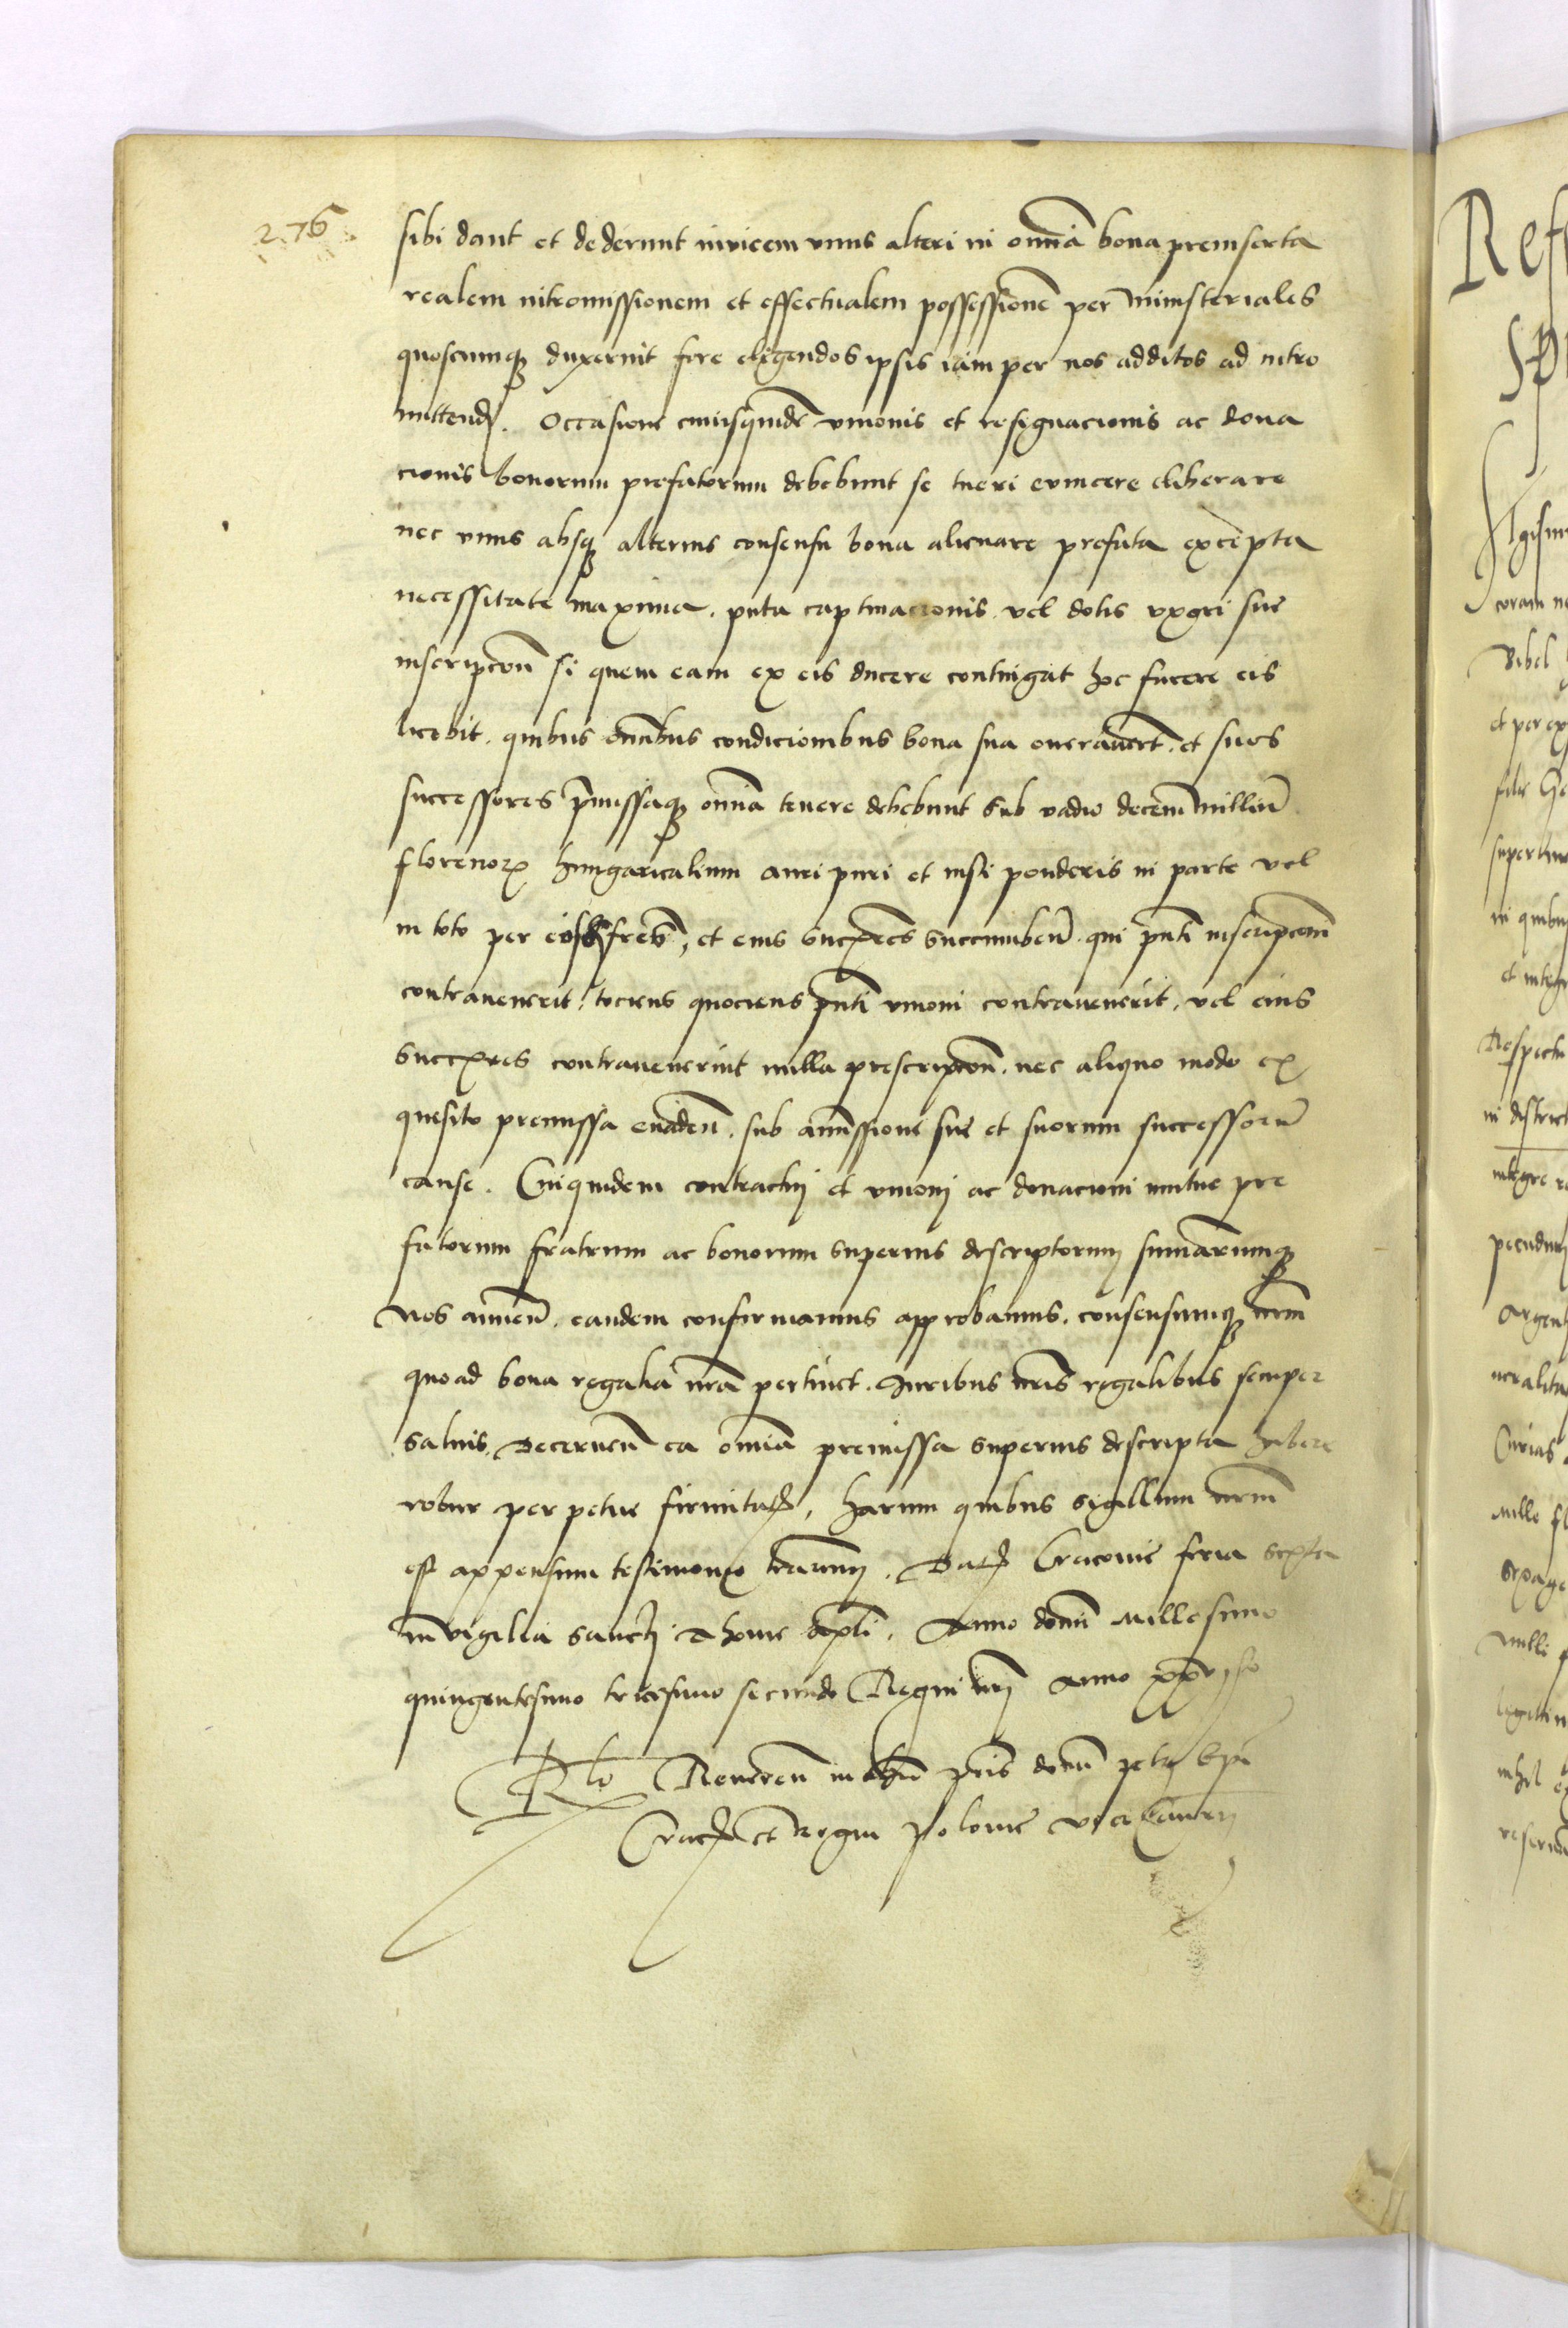 276
sibi dant et dederunt invicem vnus alteri in omnia bona preinserta
realem intromissionem et effectualem possessionem per ministeriales
quoscunque duxerint fore eligendos ipsis iam per nos additos ad intro
mittend. Occasione cuiusquidem vnionis et resignacionis ac dona
cionis bonorum prefatorum debebunt se tueri evincere eliberare
nec vnus absque alterius consensu bona alienare prefata excepta
necessitate maxima. puta captivacionis vel dotis vxori sue
inscripcionem si quem eam ex eis ducere contingat hoc facere eis
licebit. quibus omnibus condicionibus bona sua oneraverunt. et suos
successores premissaque omnia tenere debebunt sub vadio decem millium
florenorum hungaricalium auri puri et iusti ponderis in parte vel
in toto per fres, et eius successores succumbeñ. qui pñti inscripcioni
contravenerit, tociens quociens pñti vnioni contravenerit, vel eius
successores contravenerint nulla prescripcioñ. nec aliquo modo ex
quesito premissa evadeñ. sub amissione sue et suorum successorum
cause. Cuiquidem contractui et vnioni ac donacioni mutue pre
fatorum fratrum ac bonorum superius descriptorum summarumque
nos annueñ. eandem confirmamus approbamus. consensumque nrm
quoad bona regalia nra pertinet. Juribus nris regalibus semper
salvis. Decerneñ ea omnia premissa superius descripta habere
robur perpetue firmitatis, harum quibus sigillum nrm
est appensum testimonio lrarum. Dat Cracovie feria sexta
in vigilia sancti Thome apli. Anno domini Millesimo
quingentesimo tricesimo secundo Regni nri Anno
Rlo Reverendi in chri pris domi petri Epi
Crac et Regni polonie vicecancrii